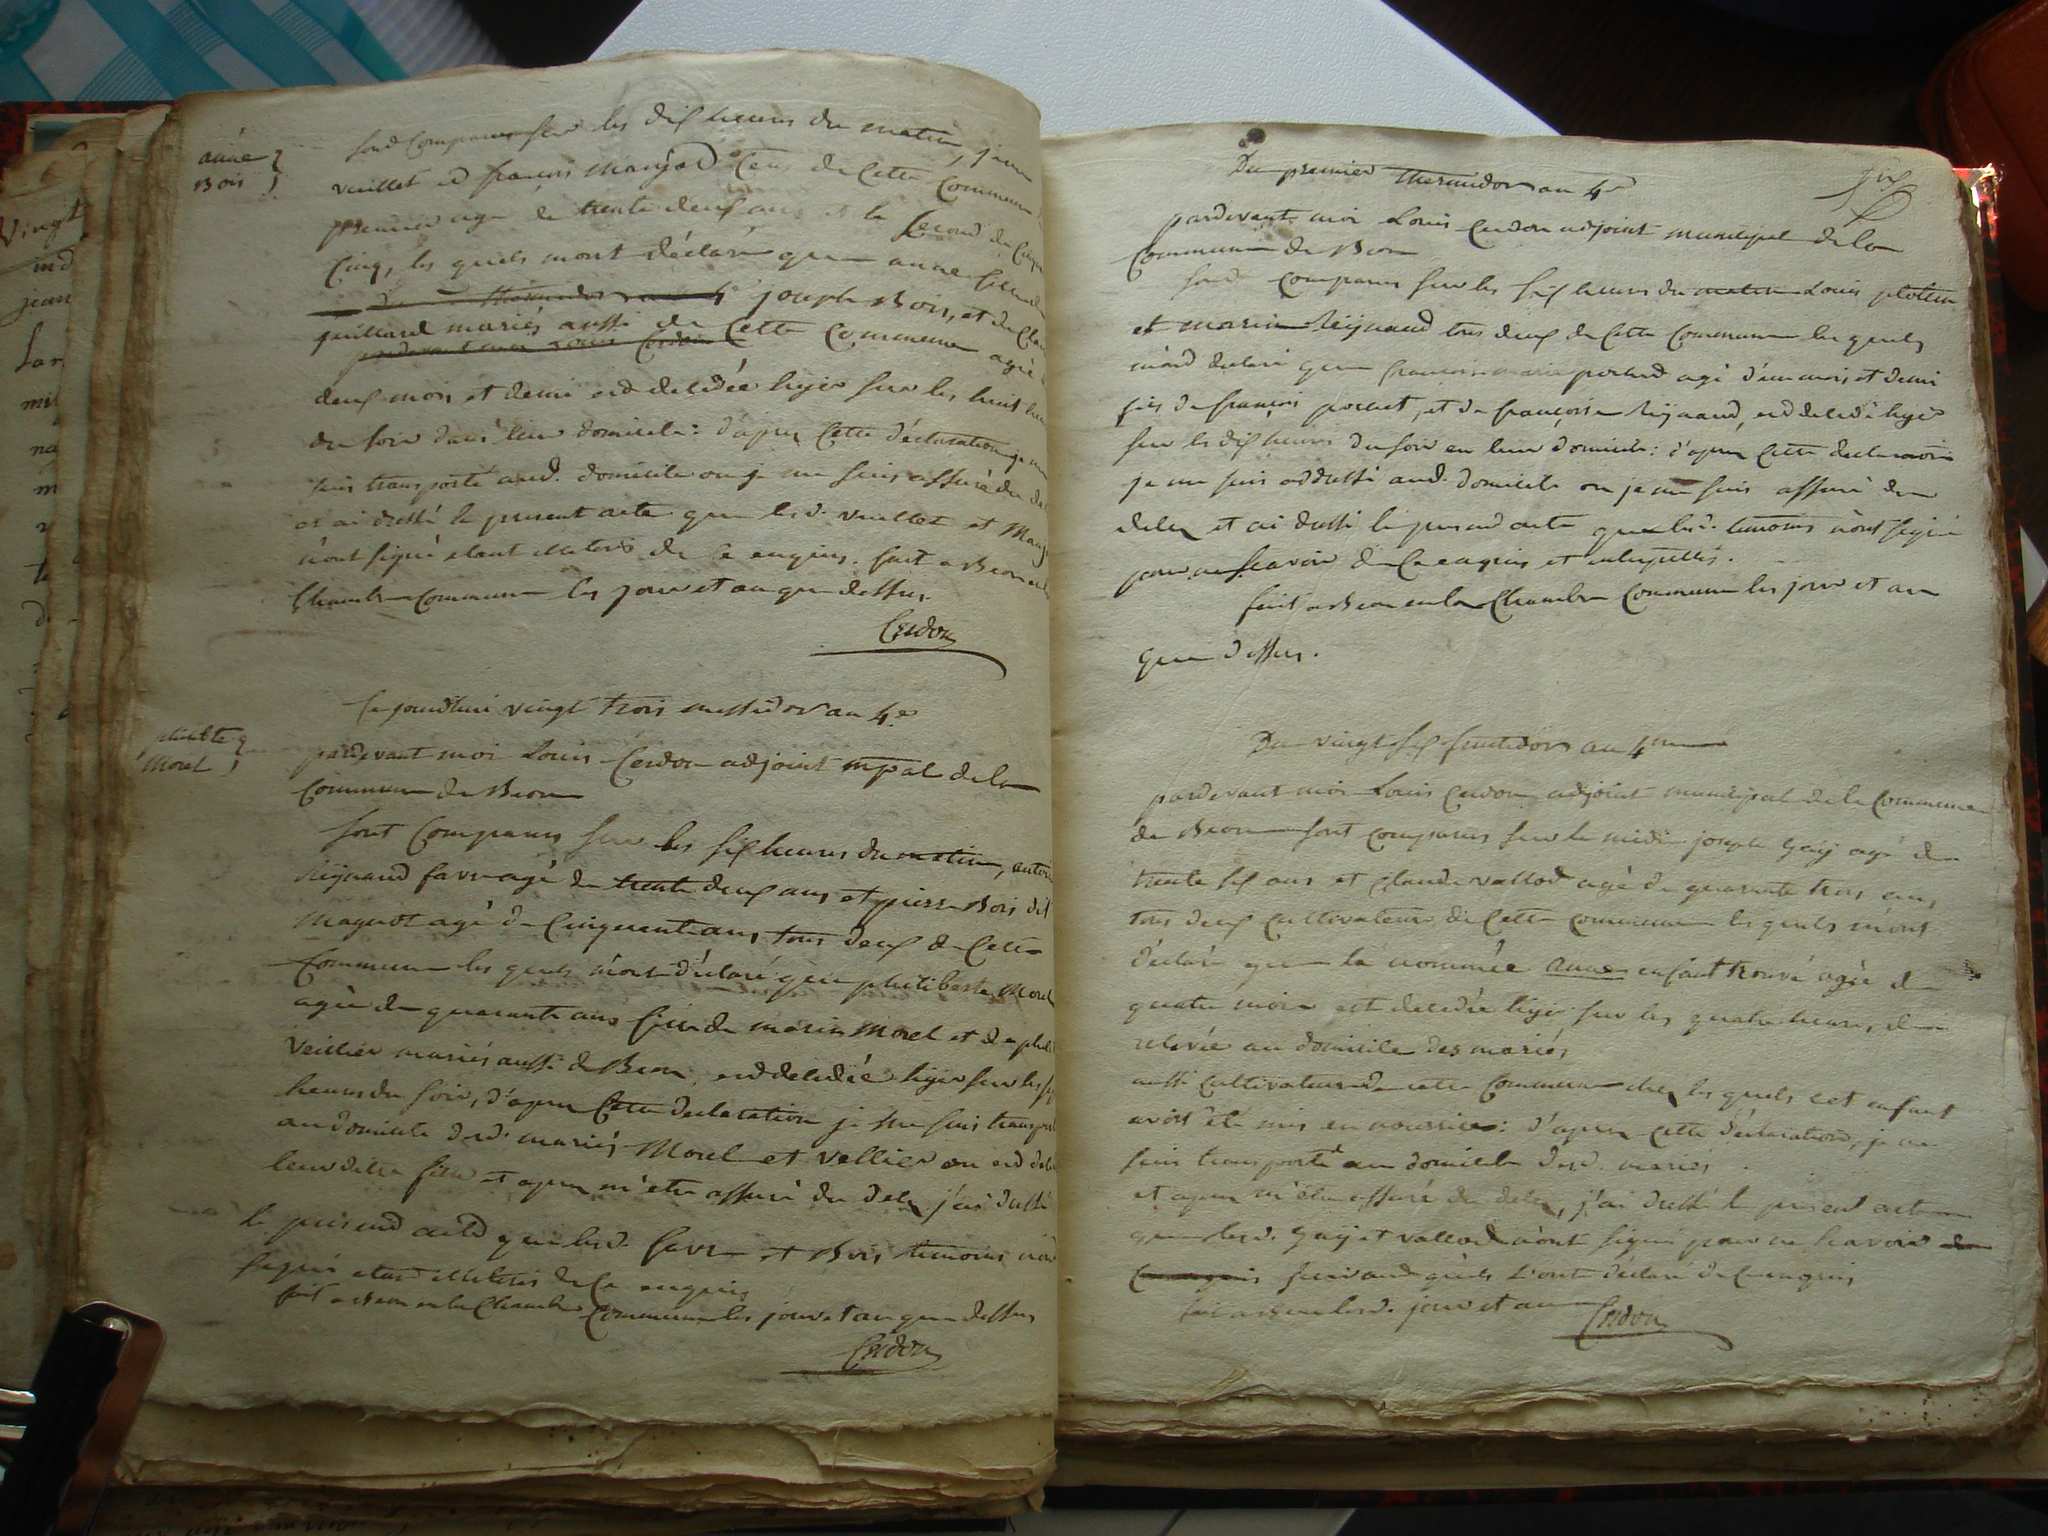 anne
Bois
sont comparus sur les dix heures du matin, jean
vuillet et françois Mangod tous de cette commune
premier agé de trente deux ans et le second de cinqu
cinq, les quels mont déclaré que anne fille de
joseph Bois, et de
guillard mariés aussi de cette commune agée
deux mois et demi est décédée hyer sur les huit heu
du soir dans leur domicile: d'après cette déclaration je me
suis transporté aud. domicile ou je me suis assuré du dé
et ai dressé le present acte que lesd. vuillet et Mang
n'ont signé etant illeterés de ce enquis. fait a Beon en la
Chambre commune les jour et an que dessus.
Cerdon
Ce jourdhui vingt trois messidor an 4e
philib.te
Morel
pardevant moi Louis Cerdon adjoint mpal de la
Commune de Beon
sont comparus sur les six heures du matin, antoi
Reynaud favre agé de trente deux ans et pierre Bois dit
Magnot agé de cinquante ans tous deux de cette
Commune les quels m'ont déclaré que philiberte Morel
agée de quarante ans fille de marin Morel et de phili
Veillier mariés aussi de Beon, est décédée hyer sur les
heures du soir, d'après cette declaration je me suis transpor
au domicile desd. mariés Morel et Vellier ou est décé
leur ditte fille et après m'etre assuré du décès j'ai dressé
le present acte que lesd. favre et Bois temoins n'ont
signé etant illeterés de ce enquis
fait a Beon en la Chambre Commune les jour et an que dessus
Cerdon
Du premier thermidor an 4e
pardevant moi Louis Cerdon adjoint municipal de la
Commune de Beon
sont comparus sur les six heures du matin Louis
et marin Reynaud tous deux de cette Commune les quels
m'ont déclaré que francois marie pochet agé d'un mois et demi
fils de françois pochet, et de françoise Reynaud, est décédé hyer
sur les dix heures du soir en leur domicile: d'après cette declaration
je me suis addressé aud. domicile ou je me suis assuré du
décès et ai dressé le present acte que lesd. temoins n'ont signé
pour ne scavoir de ce enquis et interpellés.
fait a Beon en la Chambre Commune les jour et an
que dessus.
Du vingt six fructidor an 4me
pardevant moi Louis Cerdon adjoint municipal de la Commune
de Beon sont comparus sur le midi joseph Gay agé de
trente six ans et Claude vallod agé de quarante trois ans,
tous deux cultivateurs de cette commune les quels m'ont
déclaré que la nommée anne enfant trouvé agée de
quatre mois est décédée hyer sur les quatre heures de
relevée au domicile des mariés
aussi cultivateurs de cette Commune chez les quels cet enfant
avoit été mis en nourrice: d'après cette déclaration, je me
suis transporté au domicile desd. mariés
et après m'être assuré du décès, j'ai dressé le present acte
que lesd. Gay et vallod n'ont signé pour ne scavoir
suivant qu'ils l'ont déclaré de ce enquis
fait a Beon lesd. jour et an
Cerdon